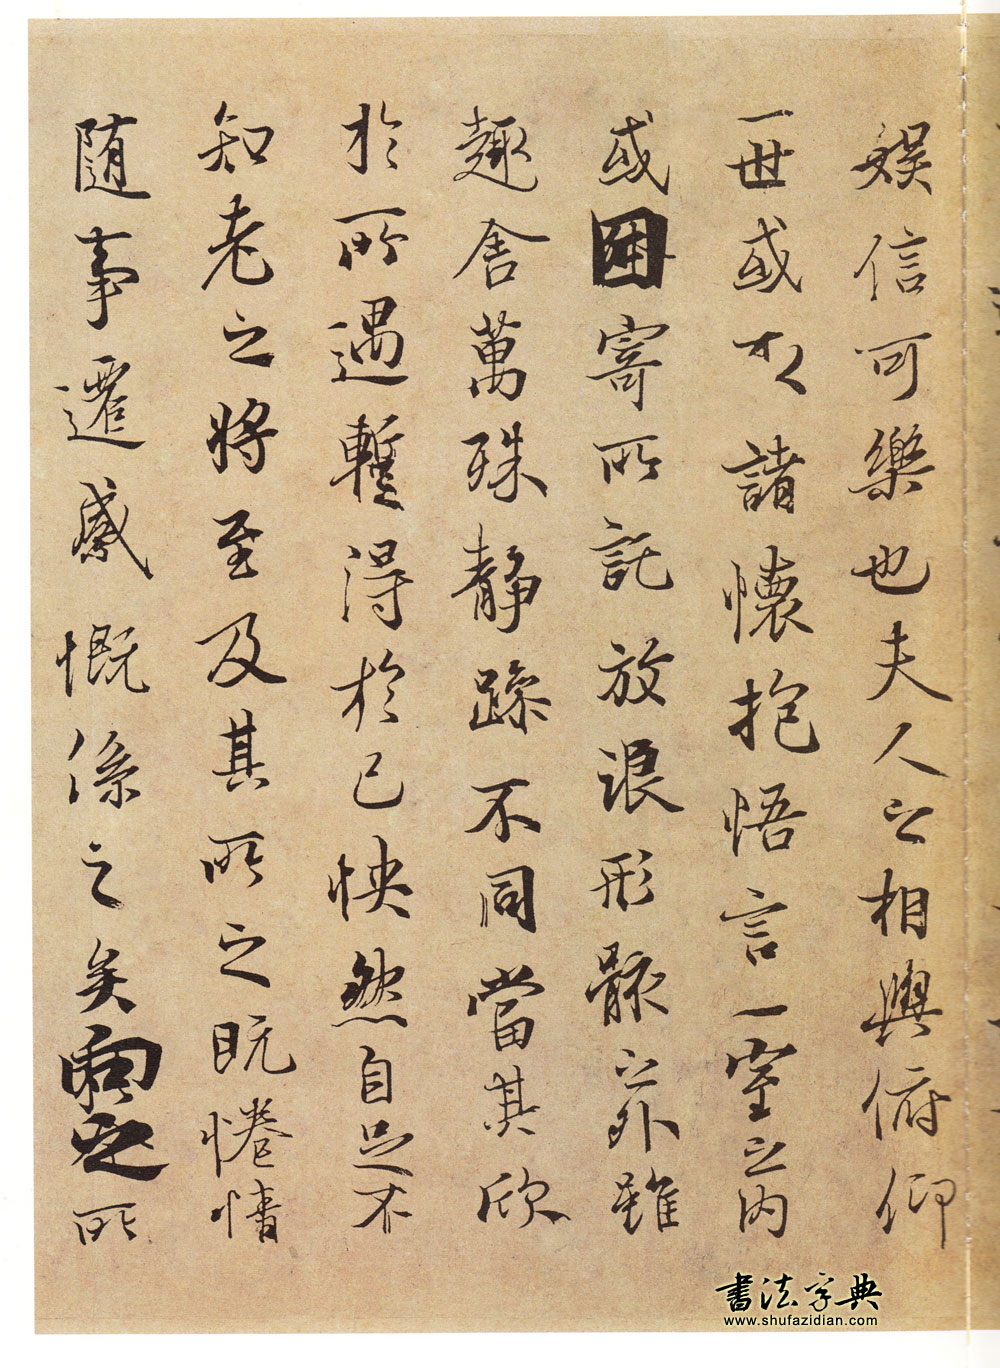 娛信可樂也夫人之相與俯仰
一世或取諸懷抱悟言一室之內
或因寄所託放浪形骸之外雖
趣舍萬殊靜躁不同當其欣
於所遇暫得於己怏然自足不
知老之將至及其所之既惓情
隨事遷感慨係之矣向之所
書法字典
www.shufazidian.com